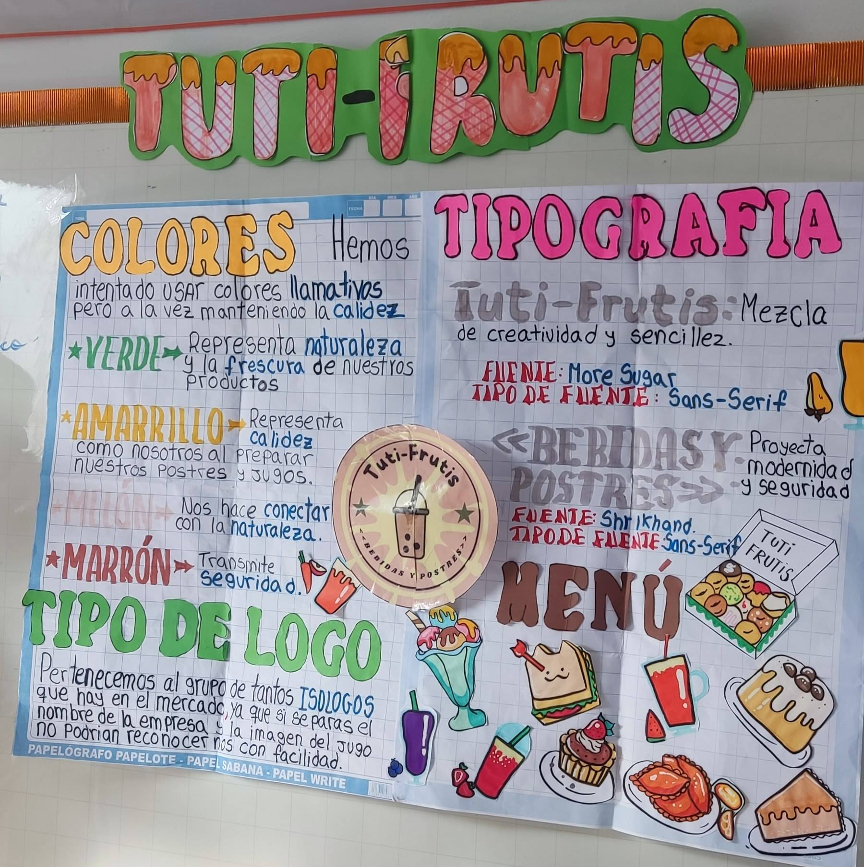 TUTI-FRUTIS
COLORES Hemos
intentado USAR colores llamativos
pero a la vez manteniendo la calidez
VERDE Representa naturaleza
y la frescura de nuestros
productos
AMARRILLO Representa
calidez
como nosotros al preparar
nuestros postres y jugos.
MELÓN Nos hace conectar
con la naturaleza.
MARRÓN Transmite
seguridad.
TIPO DE LOGO
Pertenecemos al grupo de tantos ISOLOGOS
que hay en el mercado, ya que si se paras el
nombre de la empresa y la imagen del jugo
no podrian reconocernos con facilidad.
PAPELÓGRAFO PAPELOTE - PAPEL SABANA - PAPEL WRITE
Tuti-Frutis
<<BEBIDAS Y POSTRES>>
TIPOGRAFIA
Tuti-Frutis: Mezcla
de creatividad y sencillez.
FUENTE: More Sugar
TIPO DE FUENTE: Sans-Serif
<<BEBIDAS Y
POSTRES>>
Proyecta
modernidad
y seguridad
FUENTE: Shrikhand
TIPO DE FUENTE Sans-Serif
MENÚ
TUTI
FRUTIS